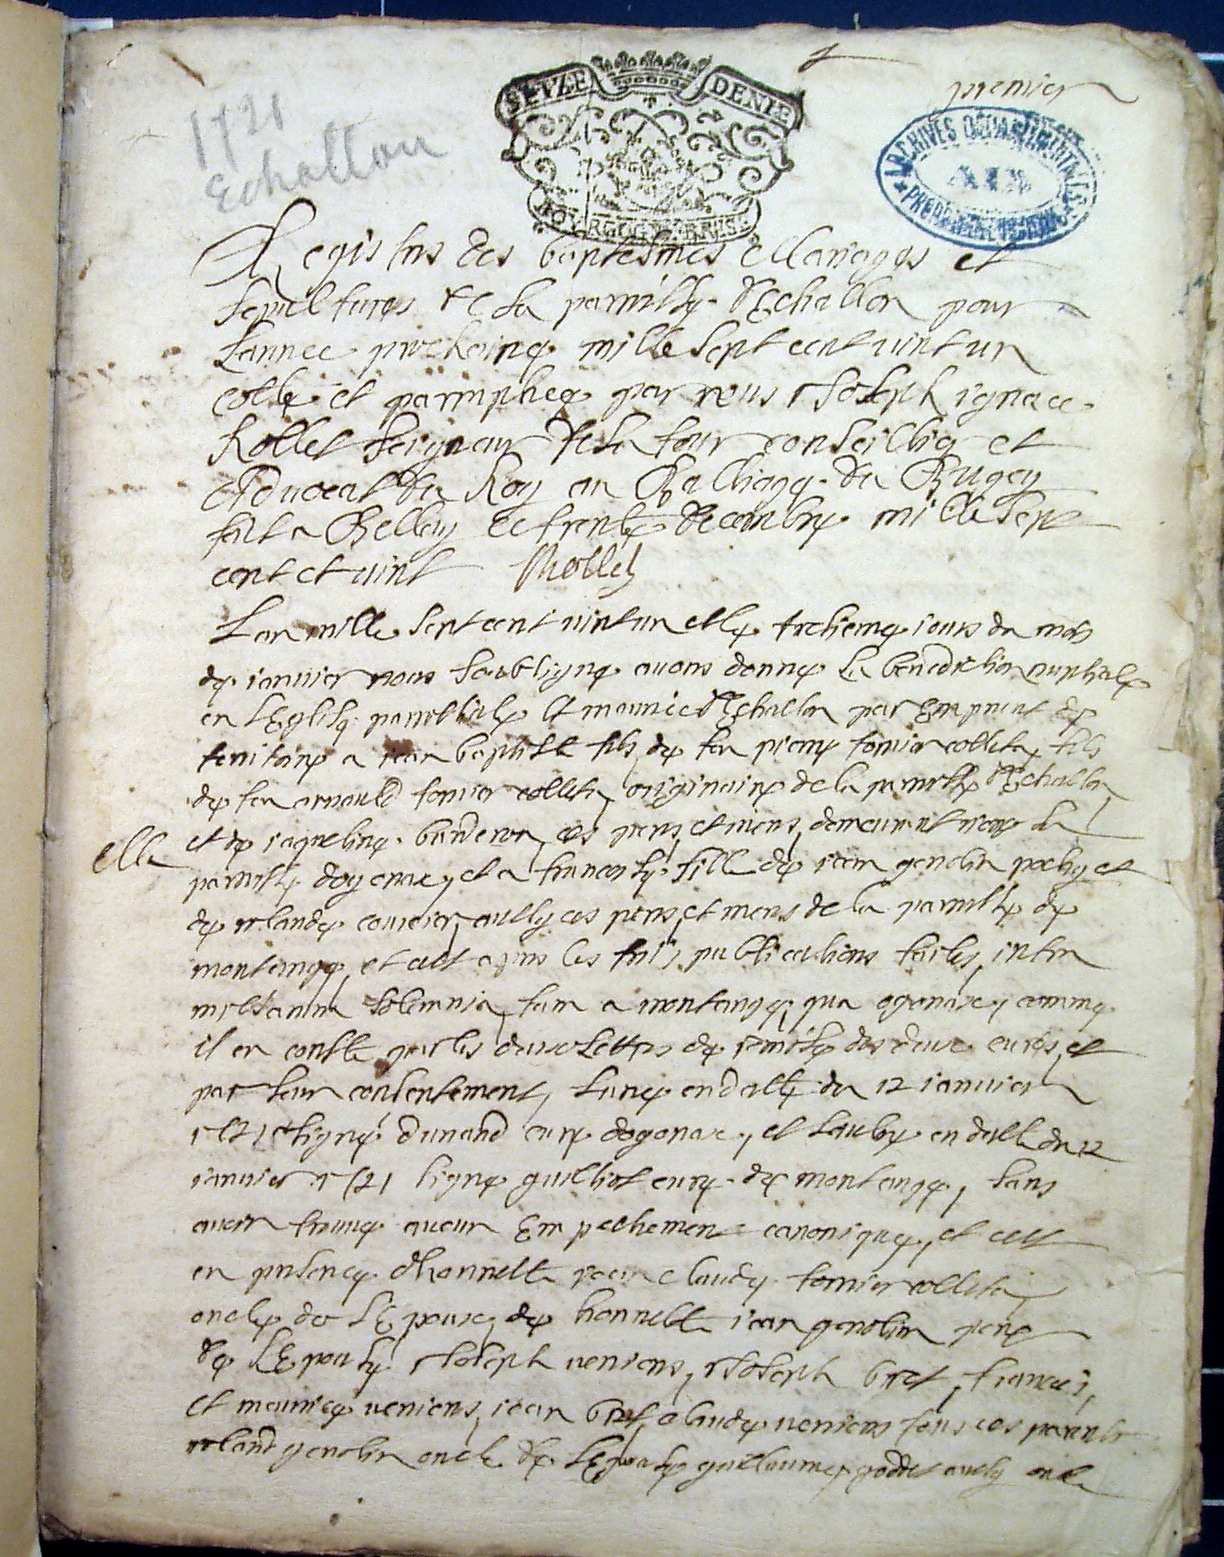 1721
Echallon
SEIZE DENIE
premier
ARCHIVES DEPARTEMENTALES
AIN
Registres des baptesmes Mariages et
sepultures de la parroisse d'Echallon pour
l'annee prochaine mille sept cent vint un
cotté et paraphée par nous Joseph ignace
Rollet seigneur de la tour conseillier et
Advocat du Roy au Balliage du Bugey
fait a Belley le trente decembre mille sept
cent et vint Rollet
L'an mille sept cent vint un et le treziemme jours du mois
de janvier nous soubsigné avons donné la benediction nuptiale
en l'Eglise parroissiale St maurice d'Echallon par
a jean baptiste fils de feu pierre tornier colleta, fils
de feu arnauld tornier colleta originaire de la parroisse d'Echallon
et de jaqueline ces peres et meres demeurant
elle
parroisse doyonax, et a francoise fille de jean genolin et
de rolande ausy ces peres et meres de la parroisse de
montange, et cest apres les trois publications faites, intra
missarum solemnia tam a montange qua ogonaxe, comme
il en conste par les deux lettres de remise des deux curés, et
par leur consentement, l'une en datte du 12 janvier
1721 signé dunand curé dogonax, et l'autre en datte du 12
janvier 1721 signé guilliot curé de montange, sans
avoir trouvé aucun Empechement canonique, et cest
en presence d'honneste jean claude tornier colleta
oncle de l'Epoux, de honneste jean genolin pere
de l'Epouse Joseph veniens, Joseph bret, francois,
et maurice veniens, jean bret, claude veniens tous ces parents
roland genolin oncle de l'Epouse guillaume poncet ausy oncle